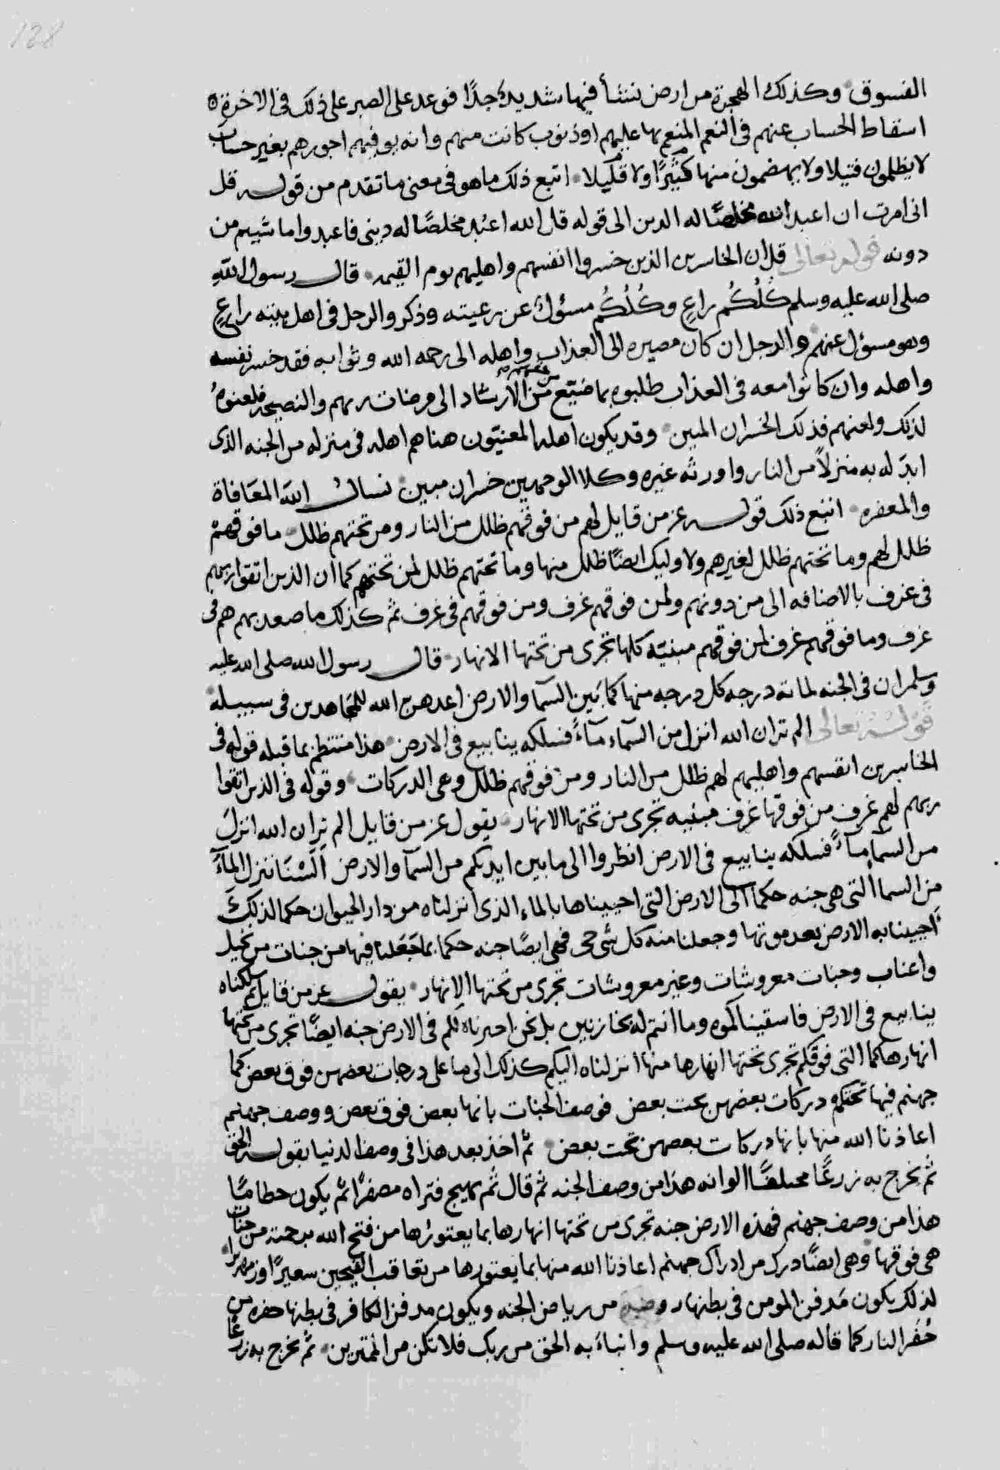 128
الفسوق وكذلك الهجرة من ارض نشأ فيها شديدة جدًا فوعد على الصبر على ذلك في الاخرة
اسقاط الحساب عنهم في النعم المنعم بها عليهم او ذنوب كانت منهم وانه يوفيهم اجورهم بغير حساب
لا يظلمون فتيلا ولا يهضمون منها كثيرًا ولا قليلا اتبع ذلك ما هو في معنى ما تقدم من قوله قل
انى امرت ان اعبد الله مخلصًا له الدين الى قوله قل الله اعبد مخلصًا له دينى فاعبدوا ما شيتم من
دونه قوله تعالى قل ان الخاسرين الذين خسروا انفسهم واهليهم يوم القيمه قال رسول الله
صلى الله عليه وسلم كلُكُم راعٍ وكُلُكُم مسؤل عن رعيته وذكر والرجل في اهل بيته راعٍ
وهو مسؤل عنهم والرجل ان كان مصيره الى العذاب واهله الى رحمه الله وثوابه فقد خسر نفسه
واهله وان كانوا معه في العذاب طلبوه بما ضيّع من الارشاد الى مرضات ربهم والنصيحه فلعنوهُ
لذلك ولعنهم فذلك الخسران المبين وقد يكون اهله المعنيّون هنا هم اهله في منزله من الجنه الذى
ابدله به منزلاً من النار واورثه غيره وكلا الوجهين خسران مبين نسال الله المعَافاة
والمغفره اتبع ذلك قوله عز من قايل لهم من فوقهم ظلل من النار ومن تحتهم ظلل ما فوقهمْ
ظلل لهم وما تحتهم ظلل لغيرهم ولاوليك ايضًا ظلل منها وما تحتهم ظلل لمن تحتهم كما ان الذين اتقوا ربهم
في غرف بالاضافه الى من دونهم ولمن فوقهم غرف ومن فوقهم في غرف ثم كذلك ما صعد بهم هم فى
غرف وما فوقهم غرف لمن فوقهم مبنيّه كلها تجرى من تحتها الانهار قال رسول الله صلى الله عليه
وسلم ان في الجنه لمائة درجه كل درجه منها كما بَين السما والارض اعدهن الله للمجاهدين في سبيله
قوله تعالى الم تر ان الله انزل من السماء ماءً فسلكه ينابيع في الارض هذا منتظم بما قبله قوله في
الخاسرين انفسهم واهليهم لهم ظلل من النار ومن فوقهم ظلل وهى الدركات وقوله في الذين اتقوا
ربهم لهم غرف من فوقها غرف مبنيه تجرى من تحتها الانهار يقول عز من قايل الم تر ان الله انزلَ
من السماء ماءً فسلكه ينابيع في الارض انظروا الى ما بين ايديكم من السما والارض اَلسْنَا ننزل الماءَ
من السما التى هي جنه حكما الى الارض التى احييناها بالماء الذى انزلناه من دار الحيوان حكما لذلكَ
احيينا به الارض بعد موتها وجعلنا منه كل شى حى فهى ايضًا جنه حكما بما جَعَلنا فيها من جنات من نخيل
واعناب وجنات معروشات وغير معروشات تجرى من تحتها الانهار يقول عز من قايل سلكناه
ينابيع في الارض فاسقيناكموه وما انتم له بخازنين بل نحن اخبرناه لكم في الارض جنه ايضًا تجرى من تحتها
انهارها كما التى فوقكم تجرى تحتها انهارها منها انزلناه اليكم كذلك الى ما على درجات بعضهن فوق بعض كما
جهنم فيها تحتكم دركات بعضهن تحت بعض فوصف الجنات بانها بعض فوق بعض ووصف جهنم
اعاذنا الله منها بانها دركات بعضهن تحت بعض ثم اخذ بعد هذا في وصف الدنيا بقوله الحق
ثم يخرج به زرعًا مختلفًا الوانه هذا من وصف الجنه ثم قال ثم يهيج فتراه مصفرًا ثم يكون حطامًا
هذا من وصف جهنم فهذه الارض جنه تجرى من تحتها انهارها بما يعتورها من فتح الله برحمته من جنات
هى فوقها وهى ايضًا درك من ادراك جهنم اعاذنا الله منها بما يعتورها من تعاقب الفيحين سعيرًا او زمهريرا
لذلك يكون مَدفن المومن في بطنها روضه من رياض الجنه ويكون مدفن الكافر في بطنها حفره من
حُفَر النار كما قاله صلى الله عليه وسلم وانباءَ به الحق من ربك فلا تكن من الممترين ثم يخرج به زرعًا